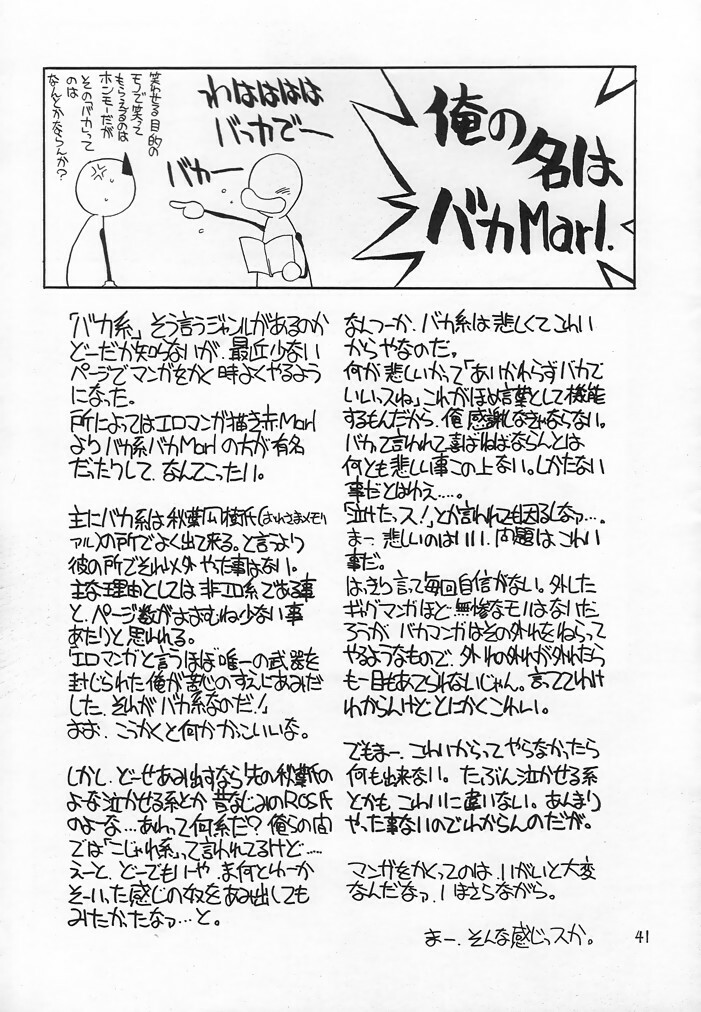 俺の
名は
バカMarl.
わはははは
バッカでー
バカー
笑わせる目的の
モノで笑って
もらえるのは
ホンモーだが
その「バカ」って
のは
なんとかならんか？
「バカ系」そう言うジャンルがあるのか
どーだか知らないが、最近少ない
ページでマンガをかく時よくやるよう
になった。
所によってはエロマンガ描き赤Marl
よりバカ系バカMarlの方が有名
だったりして、なんてこったい。
主にバカ系は秋葉凪樹氏(おれさまメモリ
アル)の所でよく出て来る。と言うより
彼の所でそれ以外やった事はない。
主な理由としては非エロ系である事
と、ページ数がおおむね少ない事
あたりと思われる。
「エロマンガと言うほぼ唯一の武器を
封じられた俺が苦心のすえにあみだ
した、それがバカ系なのだ!」
おお、こうかくと何かかっこいいな。
しかし、どーせあみ出すなら先の秋葉氏の
よーな泣かせる系とか昔なじみのROS氏
のよーな…あれって何系だ？俺らの間
では「こじゃれ系」って言われてるけど……
えーと、どーでもいいや、ま何とゆーか
そーいった感じの奴をあみ出しても
みたかったなァ…と。
なんつーか、バカ系は悲しくてこわい
からやなのだ。
何が悲しいかって「あいかわらずバカで
いいっスね」これがほめ言葉として機能
するもんだから、俺感謝しなきゃならない。
バカって言われて喜ばねばならんとは
何とも悲しい事この上ない。しかたない
事だとはゆえ……。
「泣けたっス!」とか言われても困るしなァ…。
まー、悲しいのはいい、問題はこわい
事だ。
はっきり言って毎回自信がない。外した
ギャグマンガほど無惨なモノはないだ
ろうが、バカマンガはその外れをねらって
やるようなもので、外れの外れが外れたら
も一目もあてられないじゃん。言っててわけ
わからんけどとにかくこわい。
でもまー、こわいからってやらなかったら
何も出来ない。たぶん泣かせる系
とかも、こわいに違いない。あんまり
やった事ないのでわからんのだが。
マンガをかくってのは、いがいと大変
なんだなァ、いまさらながら。
まー、そんな感じっスか。
41